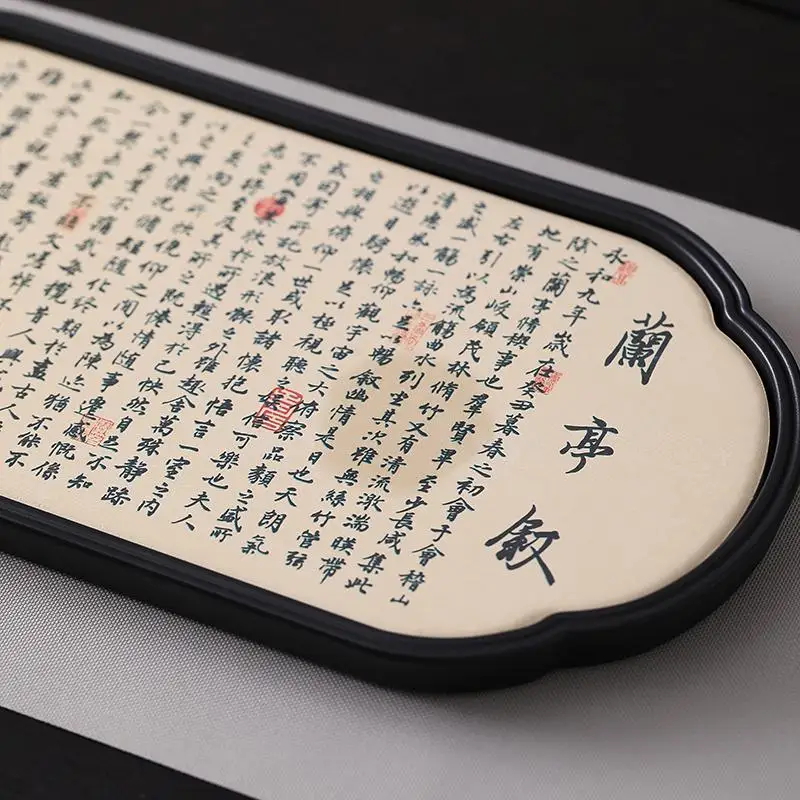 蘭亭敘
永和九年歲在癸丑暮春之初會于會稽山
陰之蘭亭脩禊事也羣賢畢至少長咸集此
地有崇山峻領茂林脩竹又有清流激湍暎帶
左右引以為流觴曲水列坐其次雖無絲竹管弦
之盛一觴一詠亦足以暢敘幽情是日也天朗氣
清惠風和暢仰觀宇宙之大俯察品類之盛所
以遊目騁懷足以極視聽之娛信可樂也夫人
之相與俯仰一世或取諸懷抱悟言一室之內
或因寄所託放浪形骸之外雖趣舍萬殊靜躁
不同當其欣於所遇暫得於己快然自足不知
老之將至及其所之既惓情隨事遷感慨係
之矣向之所欣俛仰之間以為陳迹猶不能不
以之興懷況脩短隨化終期於盡古人
大矣豈不痛哉每攬昔人興
合一契未嘗不臨文嗟悼不